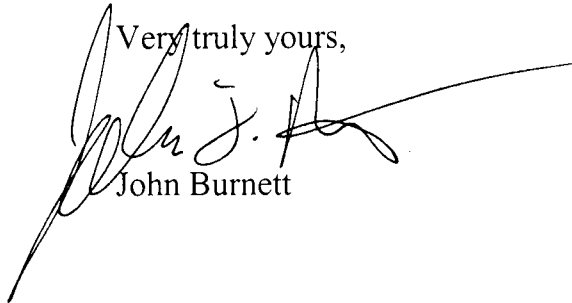 Very truly yours,
John J.
John Burnett